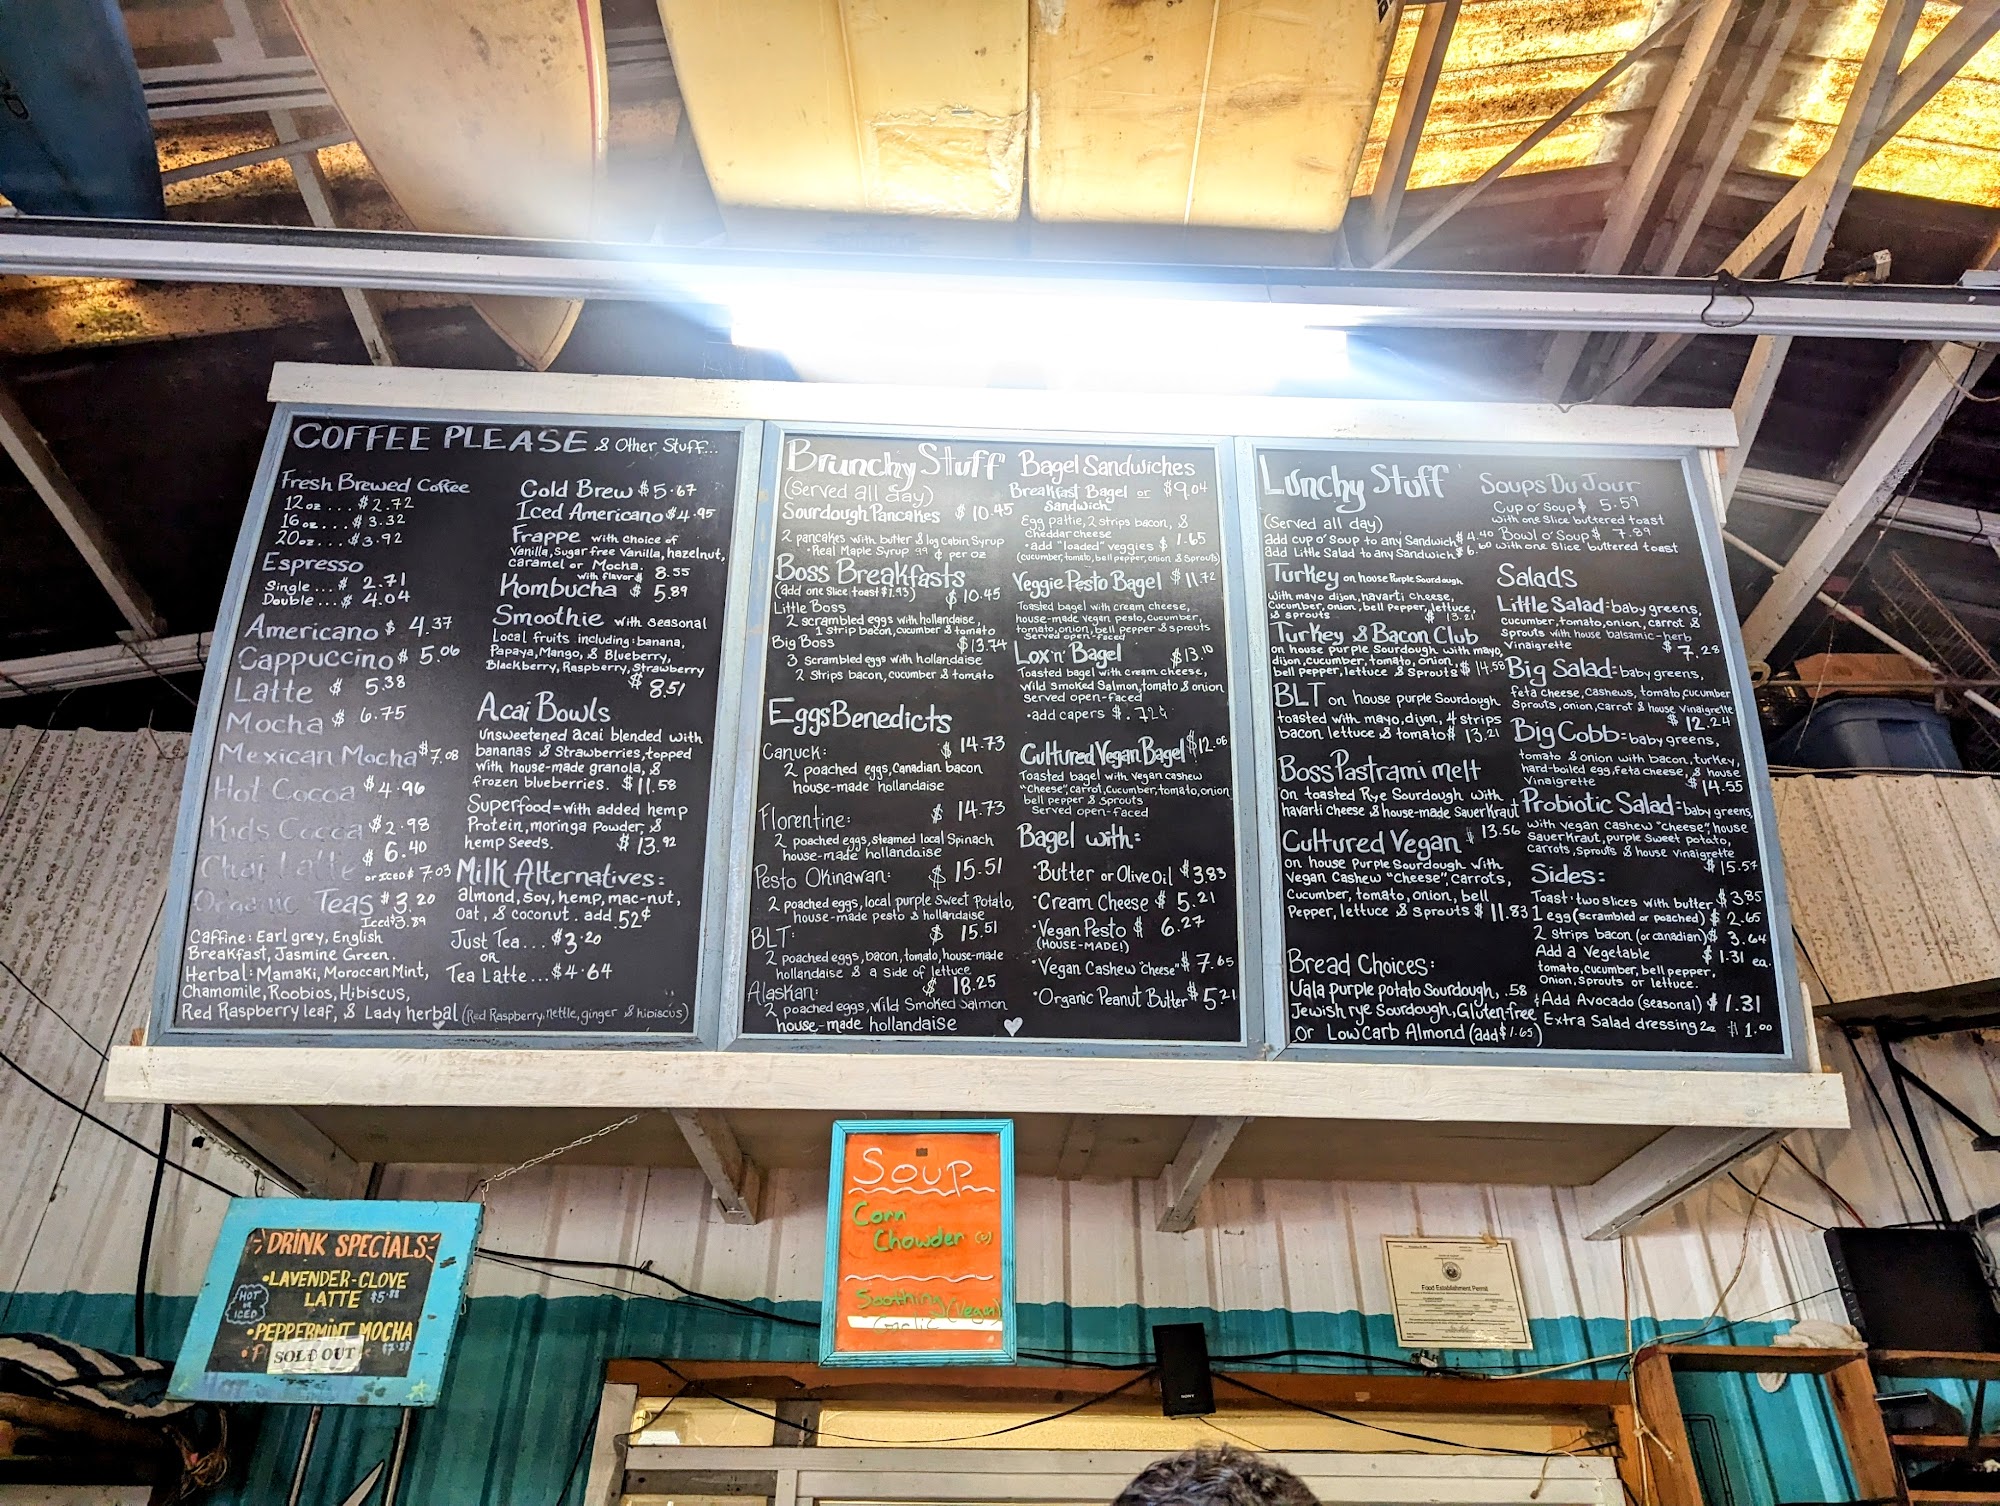 COFFEE PLEASE & Other Stuff...
Fresh Brewed Coffee
12oz ... $2.72
16oz ... $3.32
20oz ... $3.92
Espresso
Single ... $ 2.71
Double ... $ 4.04
Americano $ 4.37
Cappuccino $ 5.06
Latte $ 5.38
Mocha $ 6.75
Mexican Mocha $7.08
Hot Cocoa $4.96
Kids Cocoa $2.98
Chai Latte $ 6.40
or Iced $ 7.03
Organic Teas $3.20
Iced $3.89
Caffine: Earl grey, English
Breakfast, Jasmine Green.
Herbal: Mamaki, Moroccan Mint,
Chamomile, Roobios, Hibiscus,
Red Raspberry leaf, & Lady herbal (Red Raspberry, nettle, ginger & hibiscus)
Cold Brew $5.67
Iced Americano $4.95
Frappe with choice of
Vanilla, Sugar free Vanilla, hazelnut,
caramel or Mocha.
with flavor $ 8.55
Kombucha $ 5.89
Smoothie with seasonal
Local fruits including: banana,
Papaya, Mango, & Blueberry,
Blackberry, Raspberry, Strawberry
$ 8.51
Acai Bowls
Unsweetened acai blended with
bananas & Strawberries, topped
with house-made granola, &
frozen blueberries. $11.58
Superfood = with added hemp
Protein, moringa Powder, &
hemp Seeds. $ 13.92
Milk Alternatives:
almond, soy, hemp, mac-nut,
Oat, & coconut. add .52¢
Just Tea... $3.20
OR
Tea Latte... $4.64
Brunchy Stuff
(Served all day)
Sourdough Pancakes $ 10.45
2 pancakes with butter & log Cabin Syrup
•Real Maple Syrup 99 ¢ per oz
Boss Breakfasts
(add one Slice toast $1.93) $ 10.45
Little Boss
2 scrambled eggs with hollandaise,
1 strip bacon, cucumber & tomato
Big Boss $13.74
3 scrambled eggs with hollandaise
2 Strips bacon, cucumber & tomato
Eggs Benedicts
Canuck: $ 14.73
2 poached eggs, Canadian bacon
house-made hollandaise
Florentine: $ 14.73
2 poached eggs, steamed local Spinach
house-made hollandaise
Pesto Okinawan: $ 15.51
2 poached eggs, local purple Sweet Potato,
house-made pesto & hollandaise
BLT: $ 15.51
2 poached eggs, bacon, tomato, house-made
hollandaise & a side of lettuce
Alaskan: $ 18.25
2 poached eggs, Wild Smoked Salmon
house-made hollandaise
Bagel Sandwiches
Breakfast Bagel or $9.04
Sandwich
Egg pattie, 2 strips bacon, &
Cheddar cheese
•add "loaded" veggies $ 1.65
(cucumber, tomato, bell pepper, onion & Sprouts)
Veggie Pesto Bagel $11.72
Toasted bagel with cream cheese,
house-made vegan pesto, cucumber,
tomato, onion, bell pepper & sprouts
Served open-faced
Lox 'n' Bagel $13.10
Toasted bagel with cream cheese,
Wild smoked Salmon, tomato & onion
Served open-faced
•add capers $.72¢
Cultured Vegan Bagel $12.06
Toasted bagel with Vegan cashew
"Cheese", carrot, Cucumber, tomato, onion
bell pepper & Sprouts
Served open-faced
Bagel with:
•Butter or Olive Oil $3.83
•Cream Cheese $ 5.21
•Vegan Pesto $ 6.27
(HOUSE-MADE!)
•Vegan Cashew "cheese" $ 7.65
•Organic Peanut Butter $5.21
Lunchy Stuff
(Served all day)
add cup o' Soup to any Sandwich $4.40
add Little Salad to any Sandwich $6.60
Turkey on house Purple Sourdough
With mayo, dijon, havarti cheese,
Cucumber, onion, bell Pepper, lettuce,
& sprouts $ 13.21
Turkey & Bacon Club
on house purple Sourdough with mayo,
dijon, cucumber, tomato, onion,
bell pepper, lettuce & sprouts $ 14.58
BLT on house purple Sourdough
toasted with mayo, dijon, 4 strips
bacon, lettuce & tomato $ 13.21
Boss Pastrami melt
On toasted Rye Sourdough with
havarti cheese & house-made SauerKraut
$ 13.56
Cultured Vegan
on house Purple Sourdough with
Vegan Cashew "Cheese", Carrots,
Cucumber, tomato, onion, bell
Pepper, lettuce & sprouts $ 11.83
Bread Choices:
Uala purple potato Sourdough, .58
Jewish rye Sourdough, Gluten-free,
Or Low Carb Almond (add $1.65)
Soups Du Jour
Cup o' Soup $ 5.59
with one Slice buttered toast
Bowl o' Soup $ 7.89
with one Slice buttered toast
Salads
Little Salad: baby greens,
cucumber, tomato, onion, carrot &
Sprouts with house balsamic-herb
Vinaigrette $ 7.28
Big Salad: baby greens,
feta cheese, Cashews, tomato, cucumber
Sprouts, onion, carrot & house Vinaigrette
$ 12.24
Big Cobb: baby greens,
tomato & onion with bacon, turkey,
hard-boiled egg, feta cheese, & house
Vinaigrette $ 14.55
Probiotic Salad: baby greens,
with vegan cashew "cheese", house
SauerKraut, purple Sweet potato,
Carrots, Sprouts & house Vinaigrette
$ 15.57
Sides:
Toast: two slices with butter $ 3.85
1 egg (scrambled or poached) $ 2.65
2 Strips bacon (or canadian) $ 3.64
Add a Vegetable $ 1.31 ea.
tomato, cucumber, bell pepper,
Onion, Sprouts or lettuce.
Add Avocado (seasonal) $ 1.31
Extra Salad dressing 2oz $ 1.00
DRINK SPECIALS
•LAVENDER-CLOVE
LATTE $5.88
HOT or ICED
•PEPPERMINT MOCHA
SOLD OUT
SOUP
Corn
Chowder (v)
Soothing (Vegan)
Garlic
Food Establishment Permit
SONY